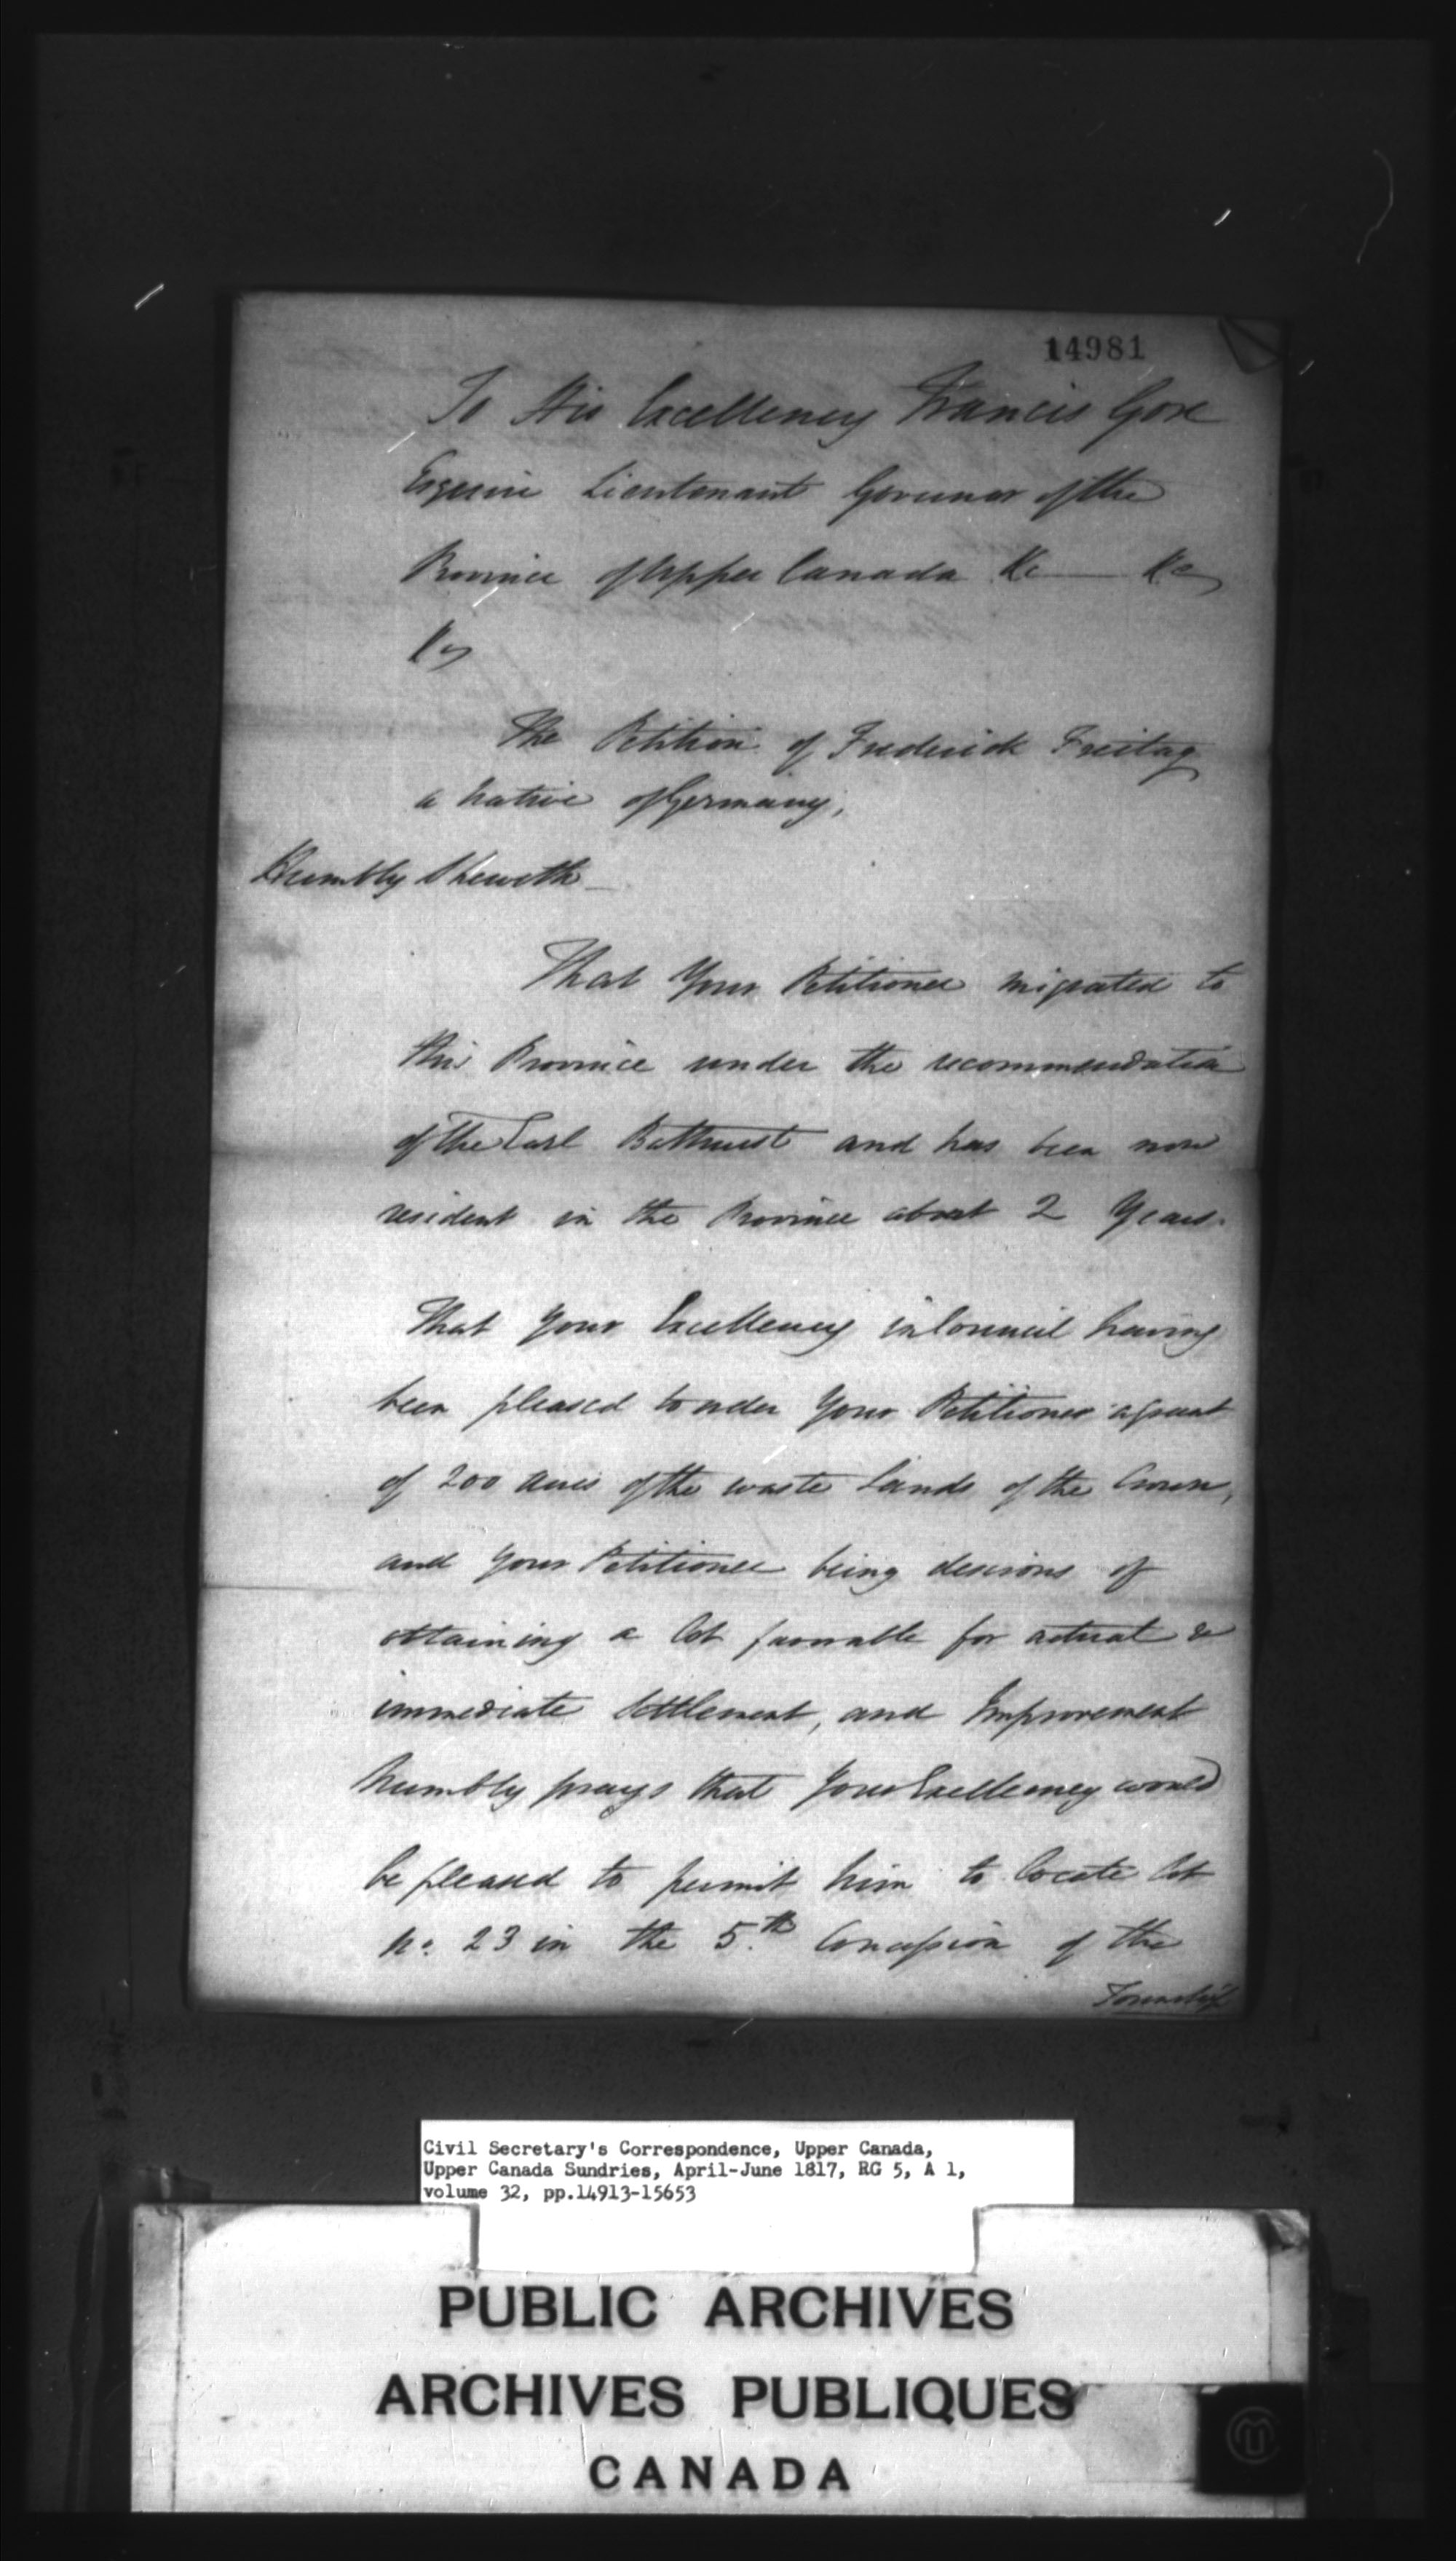 14981
To His Excellency Francis Gore
Esquire Lieutenant Governor of the
Province of Upper Canada &c — &c
&c
The Petition of Frederick Freitag
a Native of Germany,
Humbly Sheweth —
That Your Petitioner migrated to
this Province under the recommendation
of the Earl Bathurst and has been now
resident in the Province about 2 Years.
That Your Excellency in Council having
been pleased to order Your Petitioner a grant
of 200 acres of the waste Lands of the Crown,
and Your Petitioner being desirous of
obtaining a lot favorable for actual &
immediate Settlement, and Improvement
humbly prays that Your Excellency would
be pleased to permit him to locate lot
No. 23 in the 5.th Concession of the
Township
Civil Secretary's Correspondence, Upper Canada,
Upper Canada Sundries, April-June 1817, RG 5, A 1,
volume 32, pp.14913-15653
PUBLIC ARCHIVES
ARCHIVES PUBLIQUES
CANADA